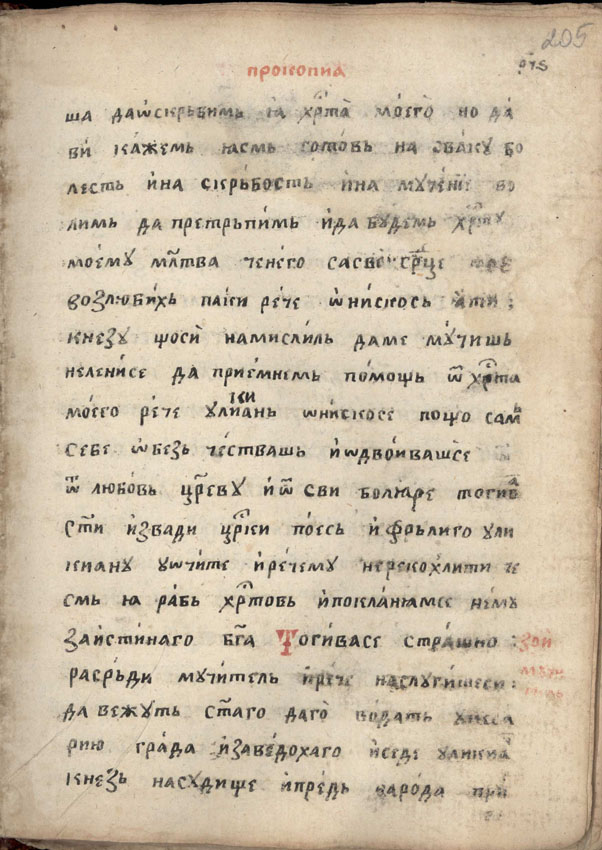 205
ПРОКОПИА
ша даѡскрьбимь ꙗ хрⷭ҇та̀ моегѡ̀ но да́
ви́ ка́жемь ꙗсмь готовь на сва́кꙋ бо
лесть и́на скрьбость и́на мꙋче́нїе во
лимь да претрьпимь и́да бꙋ́демь хрⷭ҇тꙋ
моемꙋ млⷭ҇тва чене́го сасве срⷣце
возлюбихь паки рече ѡнискось а́ти :
кнезꙋ щоси̇ намислиль даме мꙋ́чишь
неленисе да̀ прие́мнемь помощь ѿ хрⷭ҇та
моего рече ꙋликиань ѡнискосе пощо самь
себе ѡбезь че́ствашь и́ѡдвои́вашсе
ѿ любовь црⷭ҇евꙋ и́ѿ сви болꙗре тогива
сти́ извади црⷭ҇ки поесь и́фрьлиго ꙋли
киа́нꙋ ꙋѡчите и́рече́мꙋ нерекохлити че
смь ꙗ ра́бь хрⷭ҇товь и́покланꙗмсе немꙋ
заи́стинаго бг҃а Тогивасе стра́шно :
расрьди мꙋчитель и́рече наслꙋги́теси :
да вежꙋть ст҃аго даго̀ водать ꙋкеса
рию гра́да и́заве́дохаго и́седе ꙋликиа
кнезь насꙋдище и́предь народа при